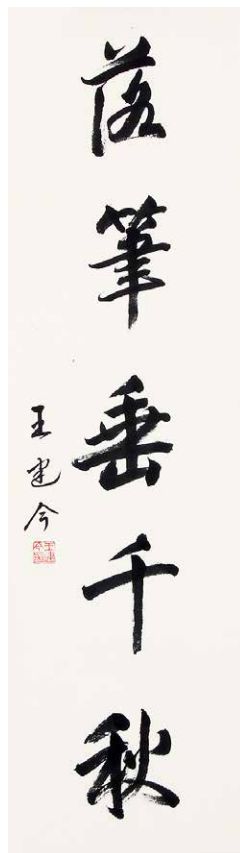 落筆垂千秋
王建今